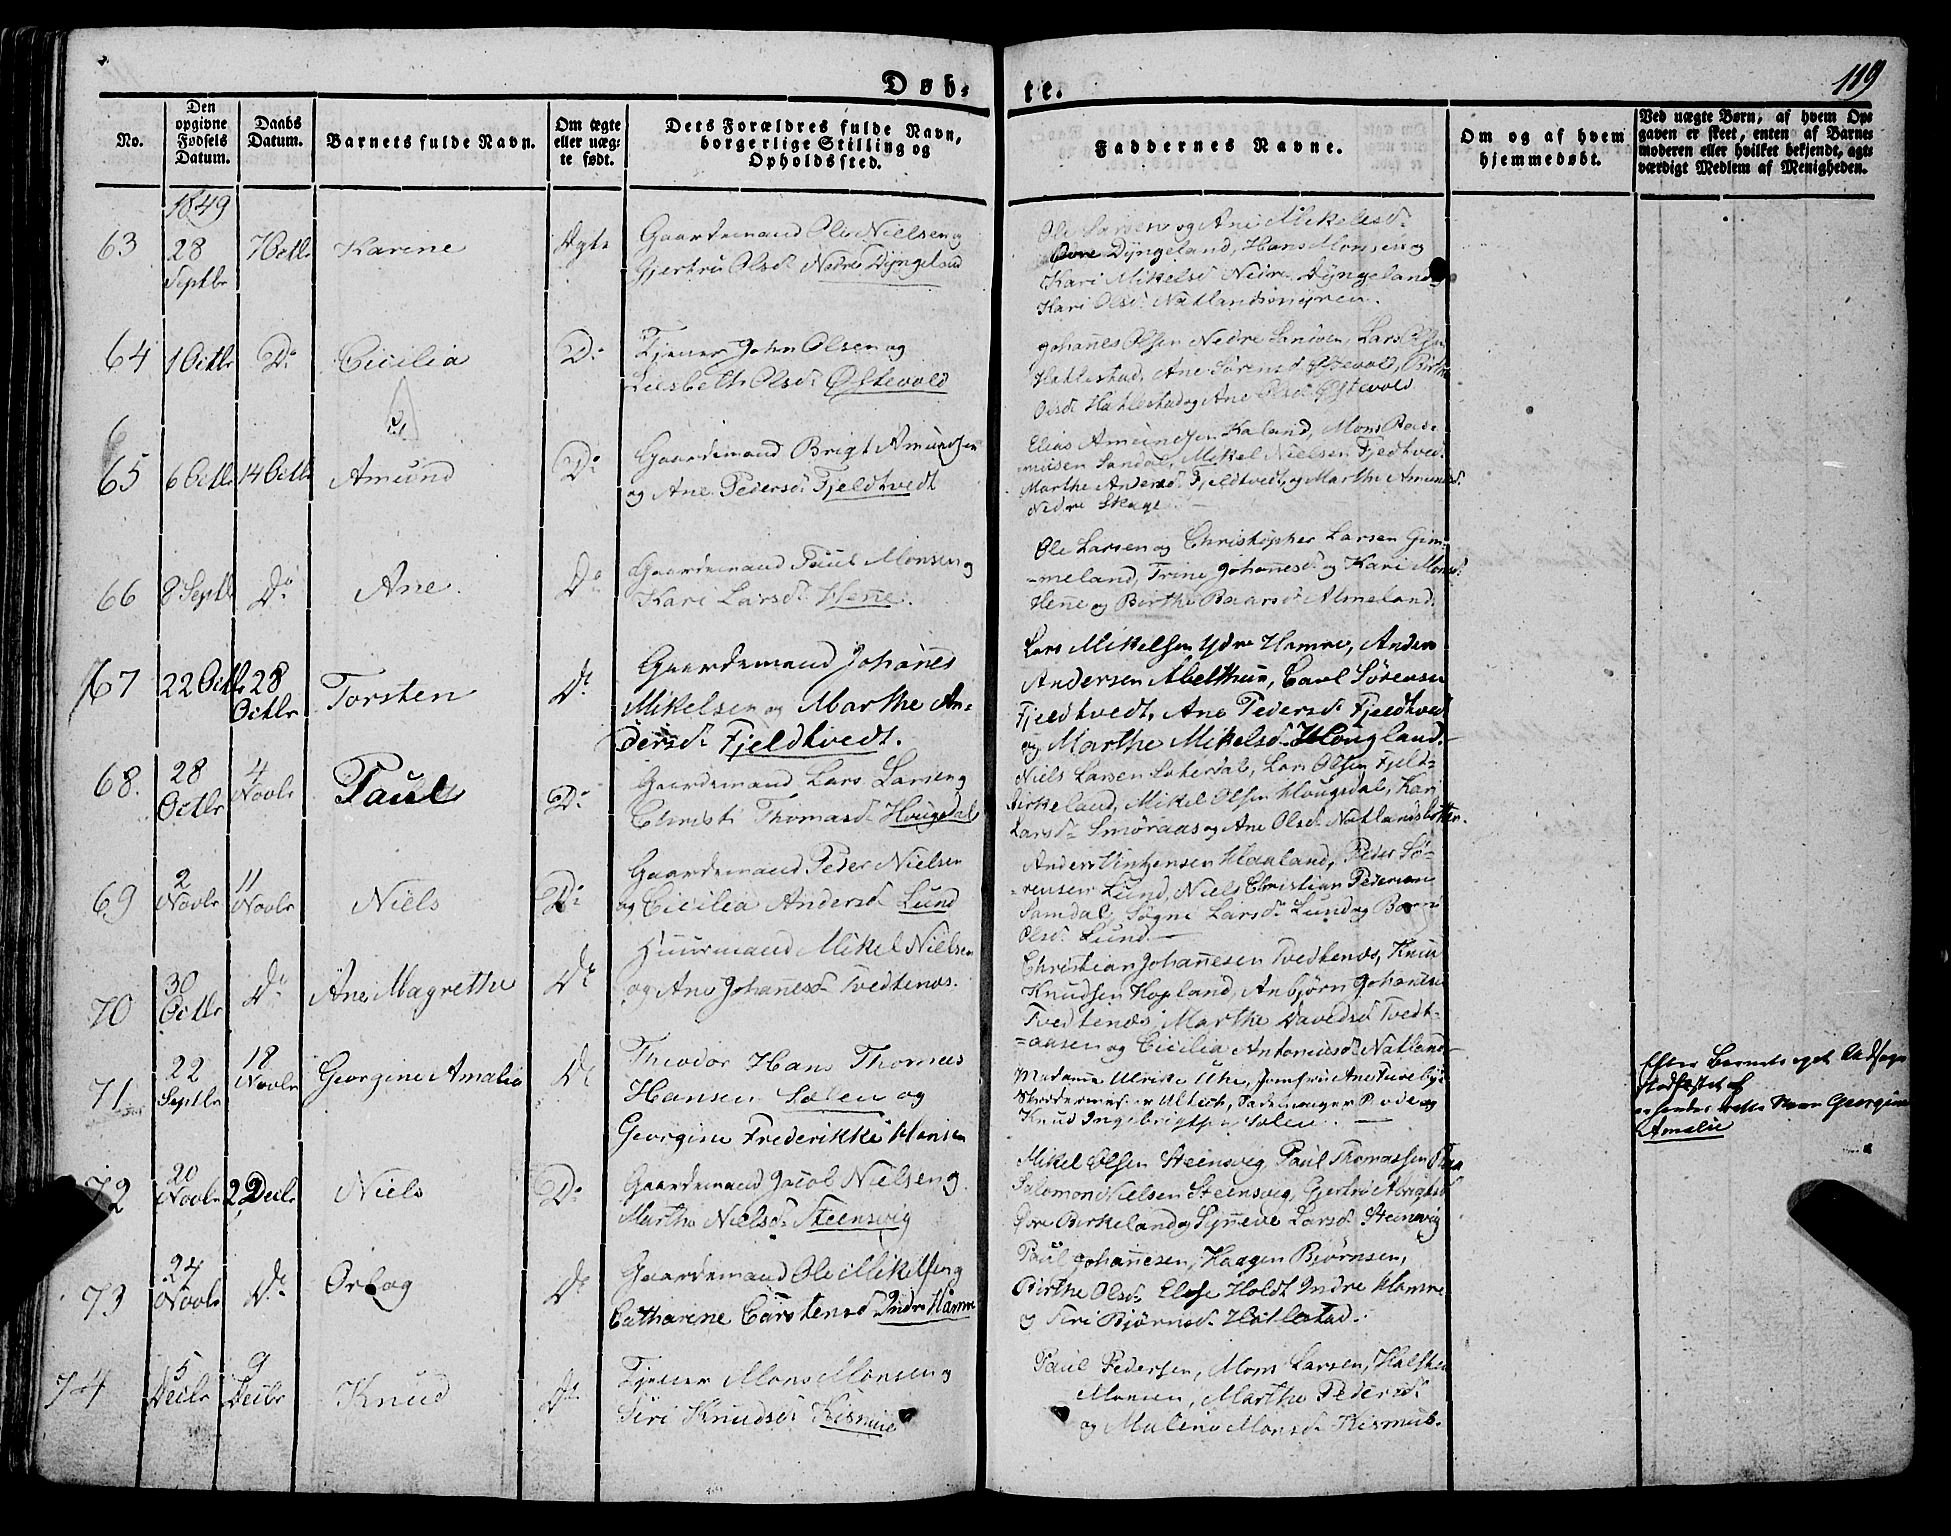 Døb-
te.
119
No.
Den opgivne Fødsels Datum.
Daabs Datum.
Barnets fulde Navn.
Om ægte eller uæg-
te født.
Dets Forældres fulde Navn,
borgerlige Stilling og
Opholdssted.
Faddernes Navne.
Om og af hvem
hjemmedøbt.
Ved uægte Børn, af hvem Op-
gaven er skeet, enten af Barne-
moderen eller hvilket bekjendt, agt-
værdigt Medlem af Menigheden.
1849
63 28 Septbr 7 Octbr Karine Ægte
Gaardemand Ole Nielsen og
Gjertru Olsd. Nedre Dyngeland
Ole Larsen og Ane Mikelsd.
Øvre Dyngeland, Hans Monsen og
Kari Mikelsd Nedre Dyngeland og
Kari Olsd. Natlandsmyren.
64 1 Octbr Do Cicilia Do
Tjener John Olsen og
Liesbeth Olsd. Østevold
Johanes Olsen Nedre Sandven, Lars Olsen
Hatlestad, Ane Sørensd Østevold, Birthe
Olsd. Hatlestad og Ane Olsd. Østevold
65 6 Octbr 14 Octbr Amund Do
Gaardemand Brigt Amundsen
og Ane Pedersd. Fjeldtvedt
Elias Amundsen Kaland, Mons Ras-
musen Sandal, Mikel Nielsen Fjeldtved.
Marthe Andersd. Fjeldtvedt, og Marthe Amundsd.
Nedre Skage
66 8 Septbr Do Ane. Do
Gaardemand Paul Monsen og
Kari Larsd. Hene.
Ole Larsen og Christopher Larsen Gim-
meland, Trine Johanesd. og Kari Monsd.
Hene og Birthe Baarsd. Almeland.
67 22 Octbr 28 Octbr Torsten Do
Gaardemand Johanes
Mikelsen og Marthe An-
dersd. Fjeldtvedt.
Lars Mikelsen Ydre Hamre, Anders
Andersen Abelthun, Carl Sørensen
Fjeldtvedt, Ane Pedersd. Fjeldtvedt
og Marthe Mikelsd. Hougland.
68. 28 Octbr 4 Novbr Paul Do
Gaardemand Lars Larsen og
Christi Thomasd. Hougsdal
Niels Larsen Sæterdal, Lars Olsen Fjeld-
birkeland, Mikel Olsen Hougsdal, Kari
Larsd. Smøraas og Ane Olsd. Natlandsbotten.
69 2 Novbr 11 Novbr Niels Do
Gaardemand Peder Nielsen
og Cicilia Andersd. Lund
Anders Vinzensen Haaland, Peder Sø-
rensen Lund, Niels Christian Pedersen
Samdal, Søgni Larsd. Lund og
Olsd. Lund.
70 30 Octbr Do Ane Magrethe Do
Huusmand Mikel Nielsen
og Ane Johanesd. Tvedtenæs.
Christian Johanesen Tvedtenæs, Knud
Knudsen Hopland, Anbjørn Johanesd
Tvedtenæs, Marthe Davedsd Tvedt-
aasen og Cicilia Antoniusd. Natland
71. 22 Septbr 18 Novbr Georgine Amalia Do
Theodor Hans Thomas
Hansen Solen og
Georgine Frederikke Hansen
Madame Ulrike Uhe, Jomfru Ane Turebye
Skræddermester Ultich, Sadelmager Rode og
Knud Ingebrigtsen Solen.
Efter Barnets eget Udsagn
stadfæstet af
er hendes rette Navn Georgine
Amalie
72 20 Novbr 2 Decbr Niels Do
Gaardemand Jacob Nielsen og
Martha Nielsd. Steensvig
Mikel Olsen Steensvig, Paul Thomassen
Salomon Nielsen Steensvig, Gjertru Abrigtsd
Øvre Birkeland og Synneve Larsd. Steensvig
73 24 Novbr Do Orlog Do
Gaardemand Ole Mikelsen og
Catharine Carstensd. Indre Hamre
Paul Johanesen, Haagen Bjørnsen,
Birthe Olsd. Else Holdt Indre Hamre
og Siri Bjørnsd. Hatlestad.
74 5 Decbr 9 Decbr Knud Do
Tjener Mons Monsen og
Siri Knudsd. Kismul
Paul Pedersen, Mons Larsen, Halsten
Monsen, Marthe Pedersd.
og Malene Monsd. Kismul.